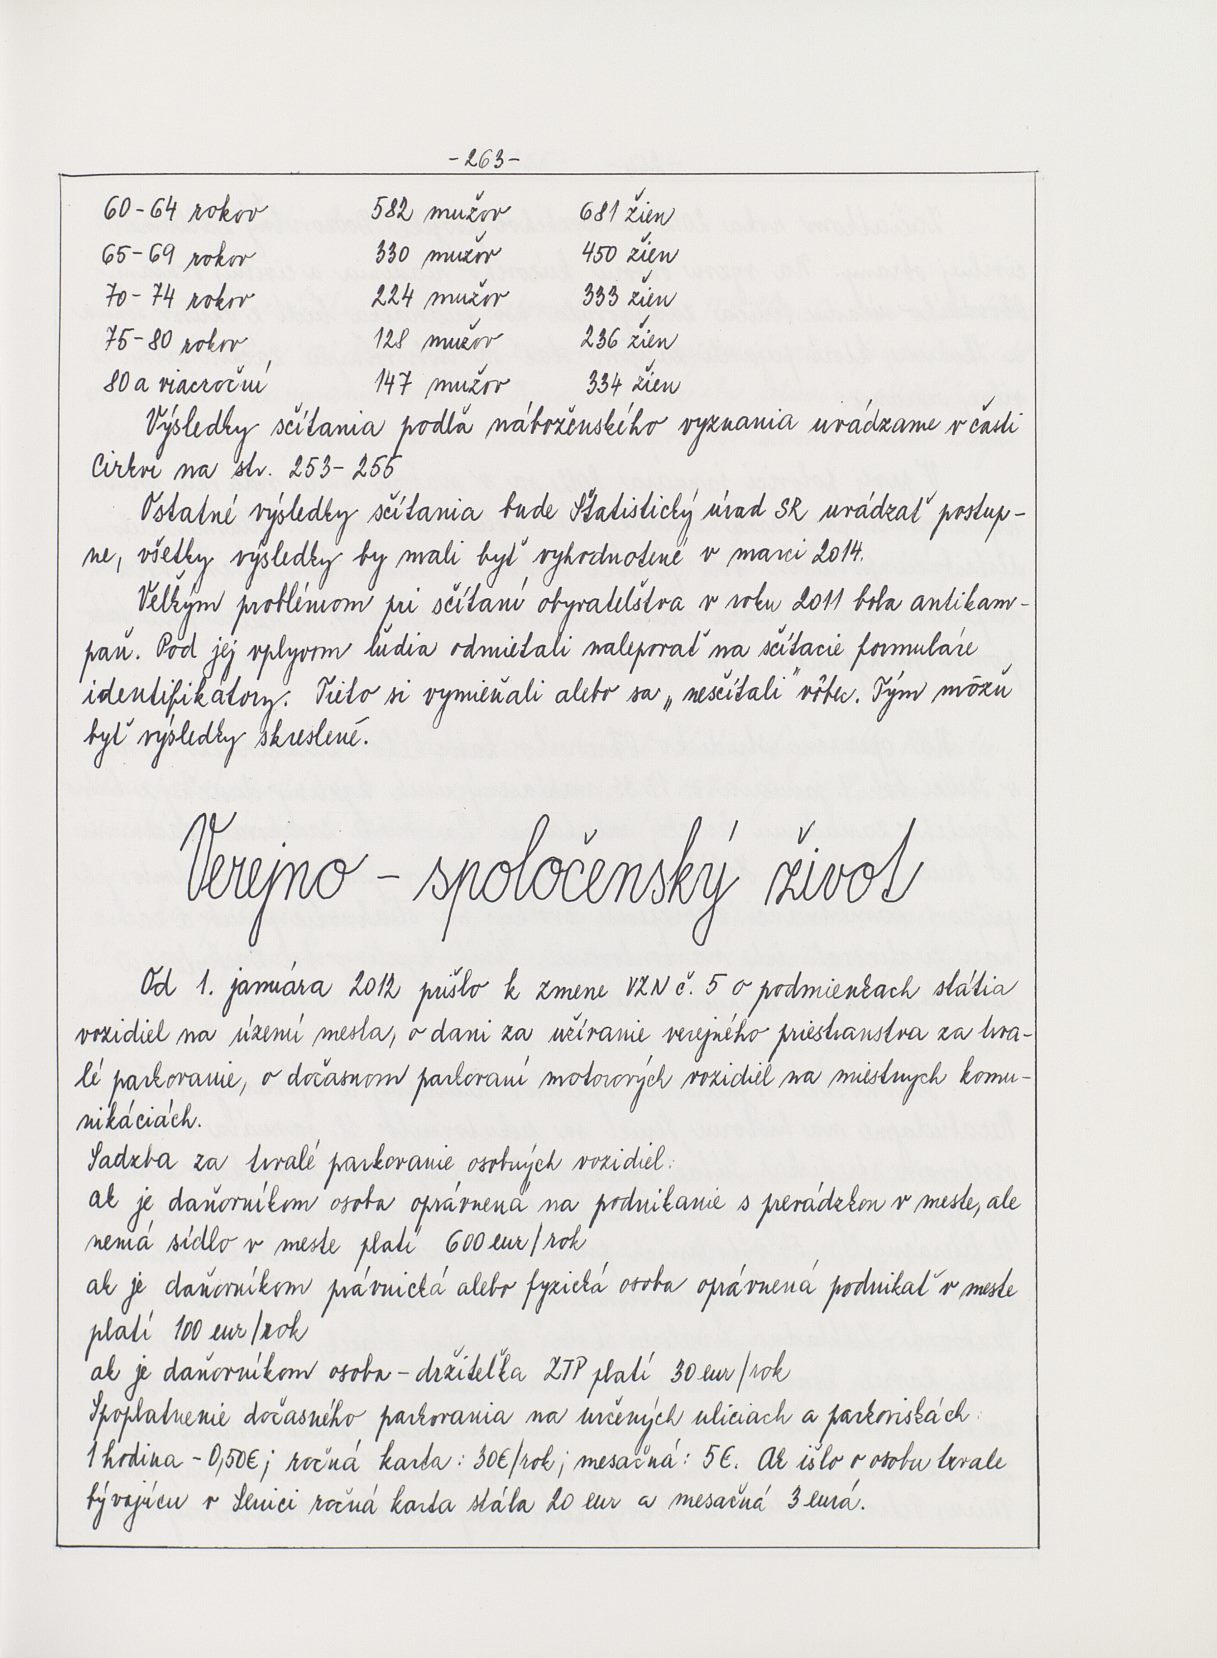 -263-
60-64 rokov 582 mužov 681 žien
65-69 rokov 330 mužov 450 žien
70-74 rokov 224 mužov 333 žien
75-80 rokov 128 mužov 236 žien
80 a viacroční 147 mužov 334 žien
Výsledky sčítania podľa náboženského vyznania uvádzame v časti
Cirkvi na str. 253-255
Ostatné výsledky sčítania bude Štatistický úrad SR uvádzať postup-
ne, všetky výsledky by mali byť vyhodnotené v marci 2014.
Veľkým problémom pri sčítaní obyvateľstva v roku 2011 bola antikam-
paň. Pod jej vplyvom ľudia odmietali nalepovať na sčítacie formuláre
identifikátory. Tieto si vymieňali alebo sa „nesčítali" vôbec. Tým môžu
byť výsledky skreslené.
Verejno - spoločenský život
Od 1. januára 2012 prišlo k zmene VZN č. 5 o podmienkach státia
vozidiel na území mesta, o dani za užívanie verejného priestranstva za trva-
lé parkovanie, o dočasnom parkovaní motorových vozidiel na miestnych komu-
nikáciách.
Sadzba za trvalé parkovanie osobných vozidiel:
ak je daňovníkom osoba oprávnená na podnikanie s prevádzkou v meste, ale
nemá sídlo v meste platí 600 eur/rok
ak je daňovníkom právnická alebo fyzická osoba oprávnená podnikať v meste
platí 100 eur/rok
ak je daňovníkom osoba - držiteľka ZTP platí 30 eur/rok
Spoplatnenie dočasného parkovania na určených uliciach a parkoviskách:
1 hodina - 0,50€; ročná karta: 30€/rok; mesačná: 5€. Ak išlo o osobu trvale
bývajúcu v Senici ročná karta stála 20 eur a mesačná 3 eurá.